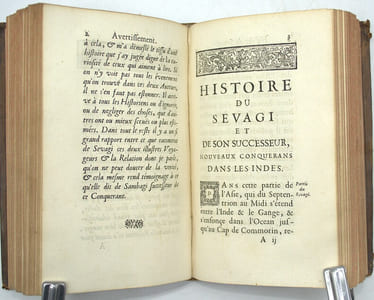 2 Avertissement.
à cela, & m'a démêlé le tissu d'une
histoire que j'ay jugée digne de la cu-
riosité de ceux qui aiment à lire. Si
on n'y voit pas tous les évenemens
qu'on trouve dans ces deux Auteurs,
il ne s'en faut pas estonner. Il arri-
ve à tous les Historiens ou d'ignorer,
ou de negliger des choses, que d'au-
tres ont ou mieux sceuës ou plus esti-
mées. Dans tout le reste il y a un si
grand rapport entre ce que racontent
de Sevagi ces deux illustres Voya-
geurs & la Relation dont je parle,
qu'on ne peut douter de la verité,
& cela mesme rend témoignage à ce
qu'elle dit de Sambagi successeur de
ce Conquerant.
3
HISTOIRE
DU
SEVAGI
ET
DE SON SUCCESSEUR,
NOUVEAUX CONQUERANS
DANS LES INDES.
DANS cette partie de
l'Asie, qui du Septen-
trion au Midi s'étend
entre l'Inde & le Gange, &
s'enfonce dans l'Ocean jus-
qu'au Cap de Commorin, re-
A ij
Partie
du
Sevagi.